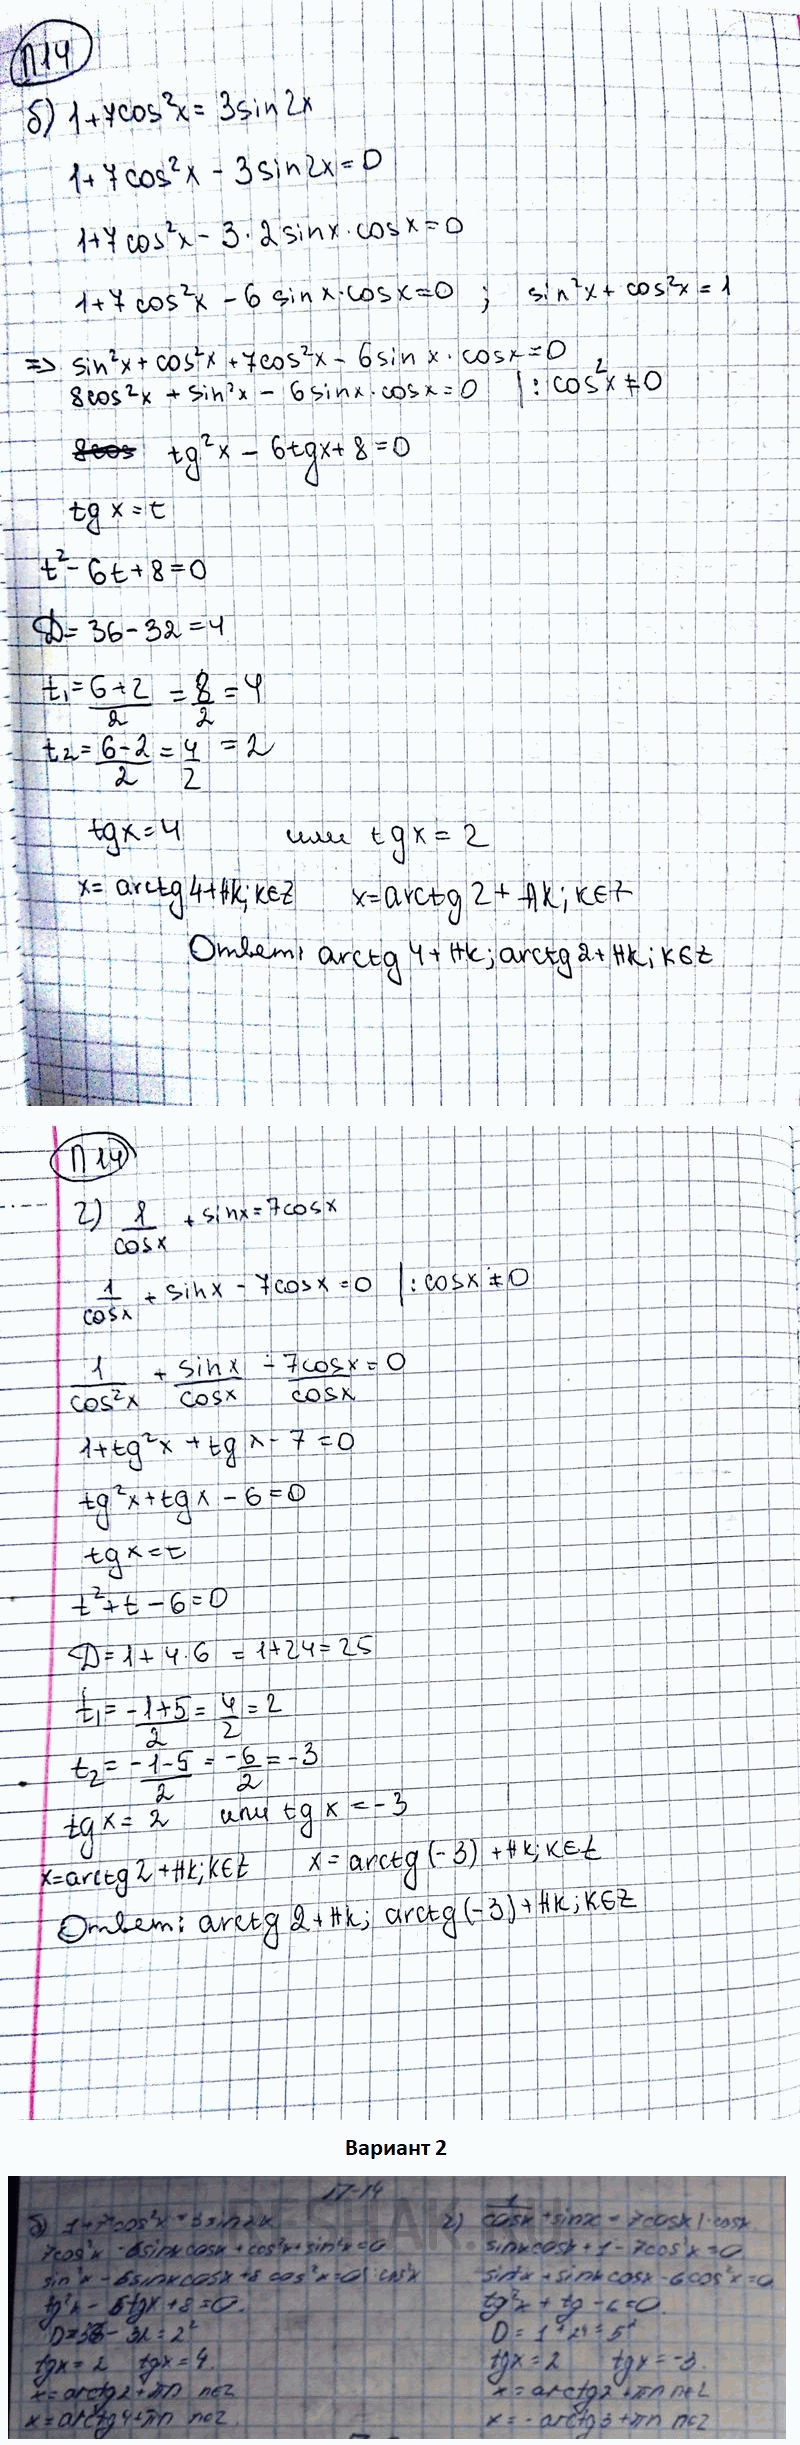 П14
б) 1+7cos²x = 3sin2x
1+7cos²x - 3sin2x = 0
1+7cos²x - 3·2sinx·cosx = 0
1+7cos²x - 6sinx·cosx = 0 ; sin²x + cos²x = 1
=> sin²x + cos²x + 7cos²x - 6sinx·cosx = 0
8cos²x + sin²x - 6sinx·cosx = 0 |: cos²x ≠ 0
tg²x - 6tgx + 8 = 0
tgx = t
t² - 6t + 8 = 0
D = 36 - 32 = 4
t₁ = (6+2)/2 = 8/2 = 4
t₂ = (6-2)/2 = 4/2 = 2
tgx = 4 или tgx = 2
x = arctg4 + πk; k∈Z x = arctg2 + πk; k∈Z
Ответ: arctg4 + πk; arctg2 + πk; k∈Z
П14
г) 1/cosx + sinx = 7cosx
1/cosx + sinx - 7cosx = 0 |: cosx ≠ 0
1/cos²x + sinx/cosx - 7cosx/cosx = 0
1 + tg²x + tgx - 7 = 0
tg²x + tgx - 6 = 0
tgx = t
t² + t - 6 = 0
D = 1 + 4·6 = 1 + 24 = 25
t₁ = (-1+5)/2 = 4/2 = 2
t₂ = (-1-5)/2 = -6/2 = -3
tgx = 2 или tgx = -3
x = arctg2 + πk; k∈Z x = arctg(-3) + πk; k∈Z
Ответ: arctg2 + πk; arctg(-3) + πk; k∈Z
Вариант 2
П-14
б) 1+7cos²x = 3sin2x
7cos²x - 6sinxcosx + cos²x + sin²x = 0
sin²x - 6sinxcosx + 8cos²x = 0 |: cos²x
tg²x - 6tgx + 8 = 0.
D = 36 - 32 = 2²
tgx = 2 tgx = 4.
x = arctg2 + πn n∈Z
x = arctg4 + πn n∈Z.
г) 1/cosx + sinx = 7cosx |· cosx
sinxcosx + 1 - 7cos²x = 0
sin²x + sinxcosx - 6cos²x = 0
tg²x + tg - 6 = 0.
D = 1 + 24 = 5²
tgx = 2 tgx = -3.
x = arctg2 + πn n∈Z
x = -arctg3 + πn n∈Z
RESHAK.RU